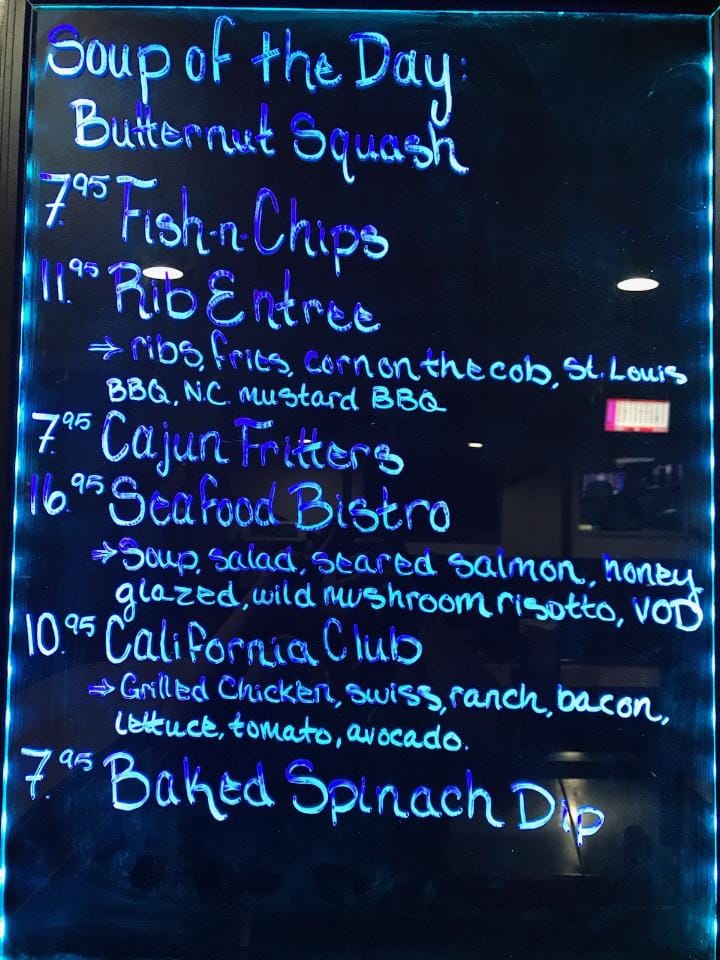 Soup of the Day:
Butternut Squash
7.95 Fish-n-Chips
11.95 Rib Entree
→ ribs, fries, corn on the cob, St. Louis
BBQ, N.C. mustard BBQ
7.95 Cajun Fritters
16.95 Seafood Bistro
→ Soup, salad, seared salmon, honey
glazed, wild mushroom risotto, VOD
10.95 California Club
→ Grilled Chicken, swiss, ranch, bacon,
lettuce, tomato, avocado.
7.95 Baked Spinach Dip